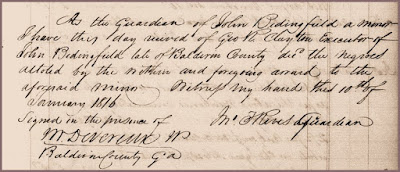 As the Guardian of John Bedingfield a minor
I have this day recived of Geo R Clayton Executor of
John Bedingfield late of Baldwin County dec'd the negroes
alloted by the within and foregoing award to the
aforesaid minor Witness my hand this 10th of
January 1816
Signed in the presence of Jno. Rives Guardian
M Devereux
Baldwin County Ga